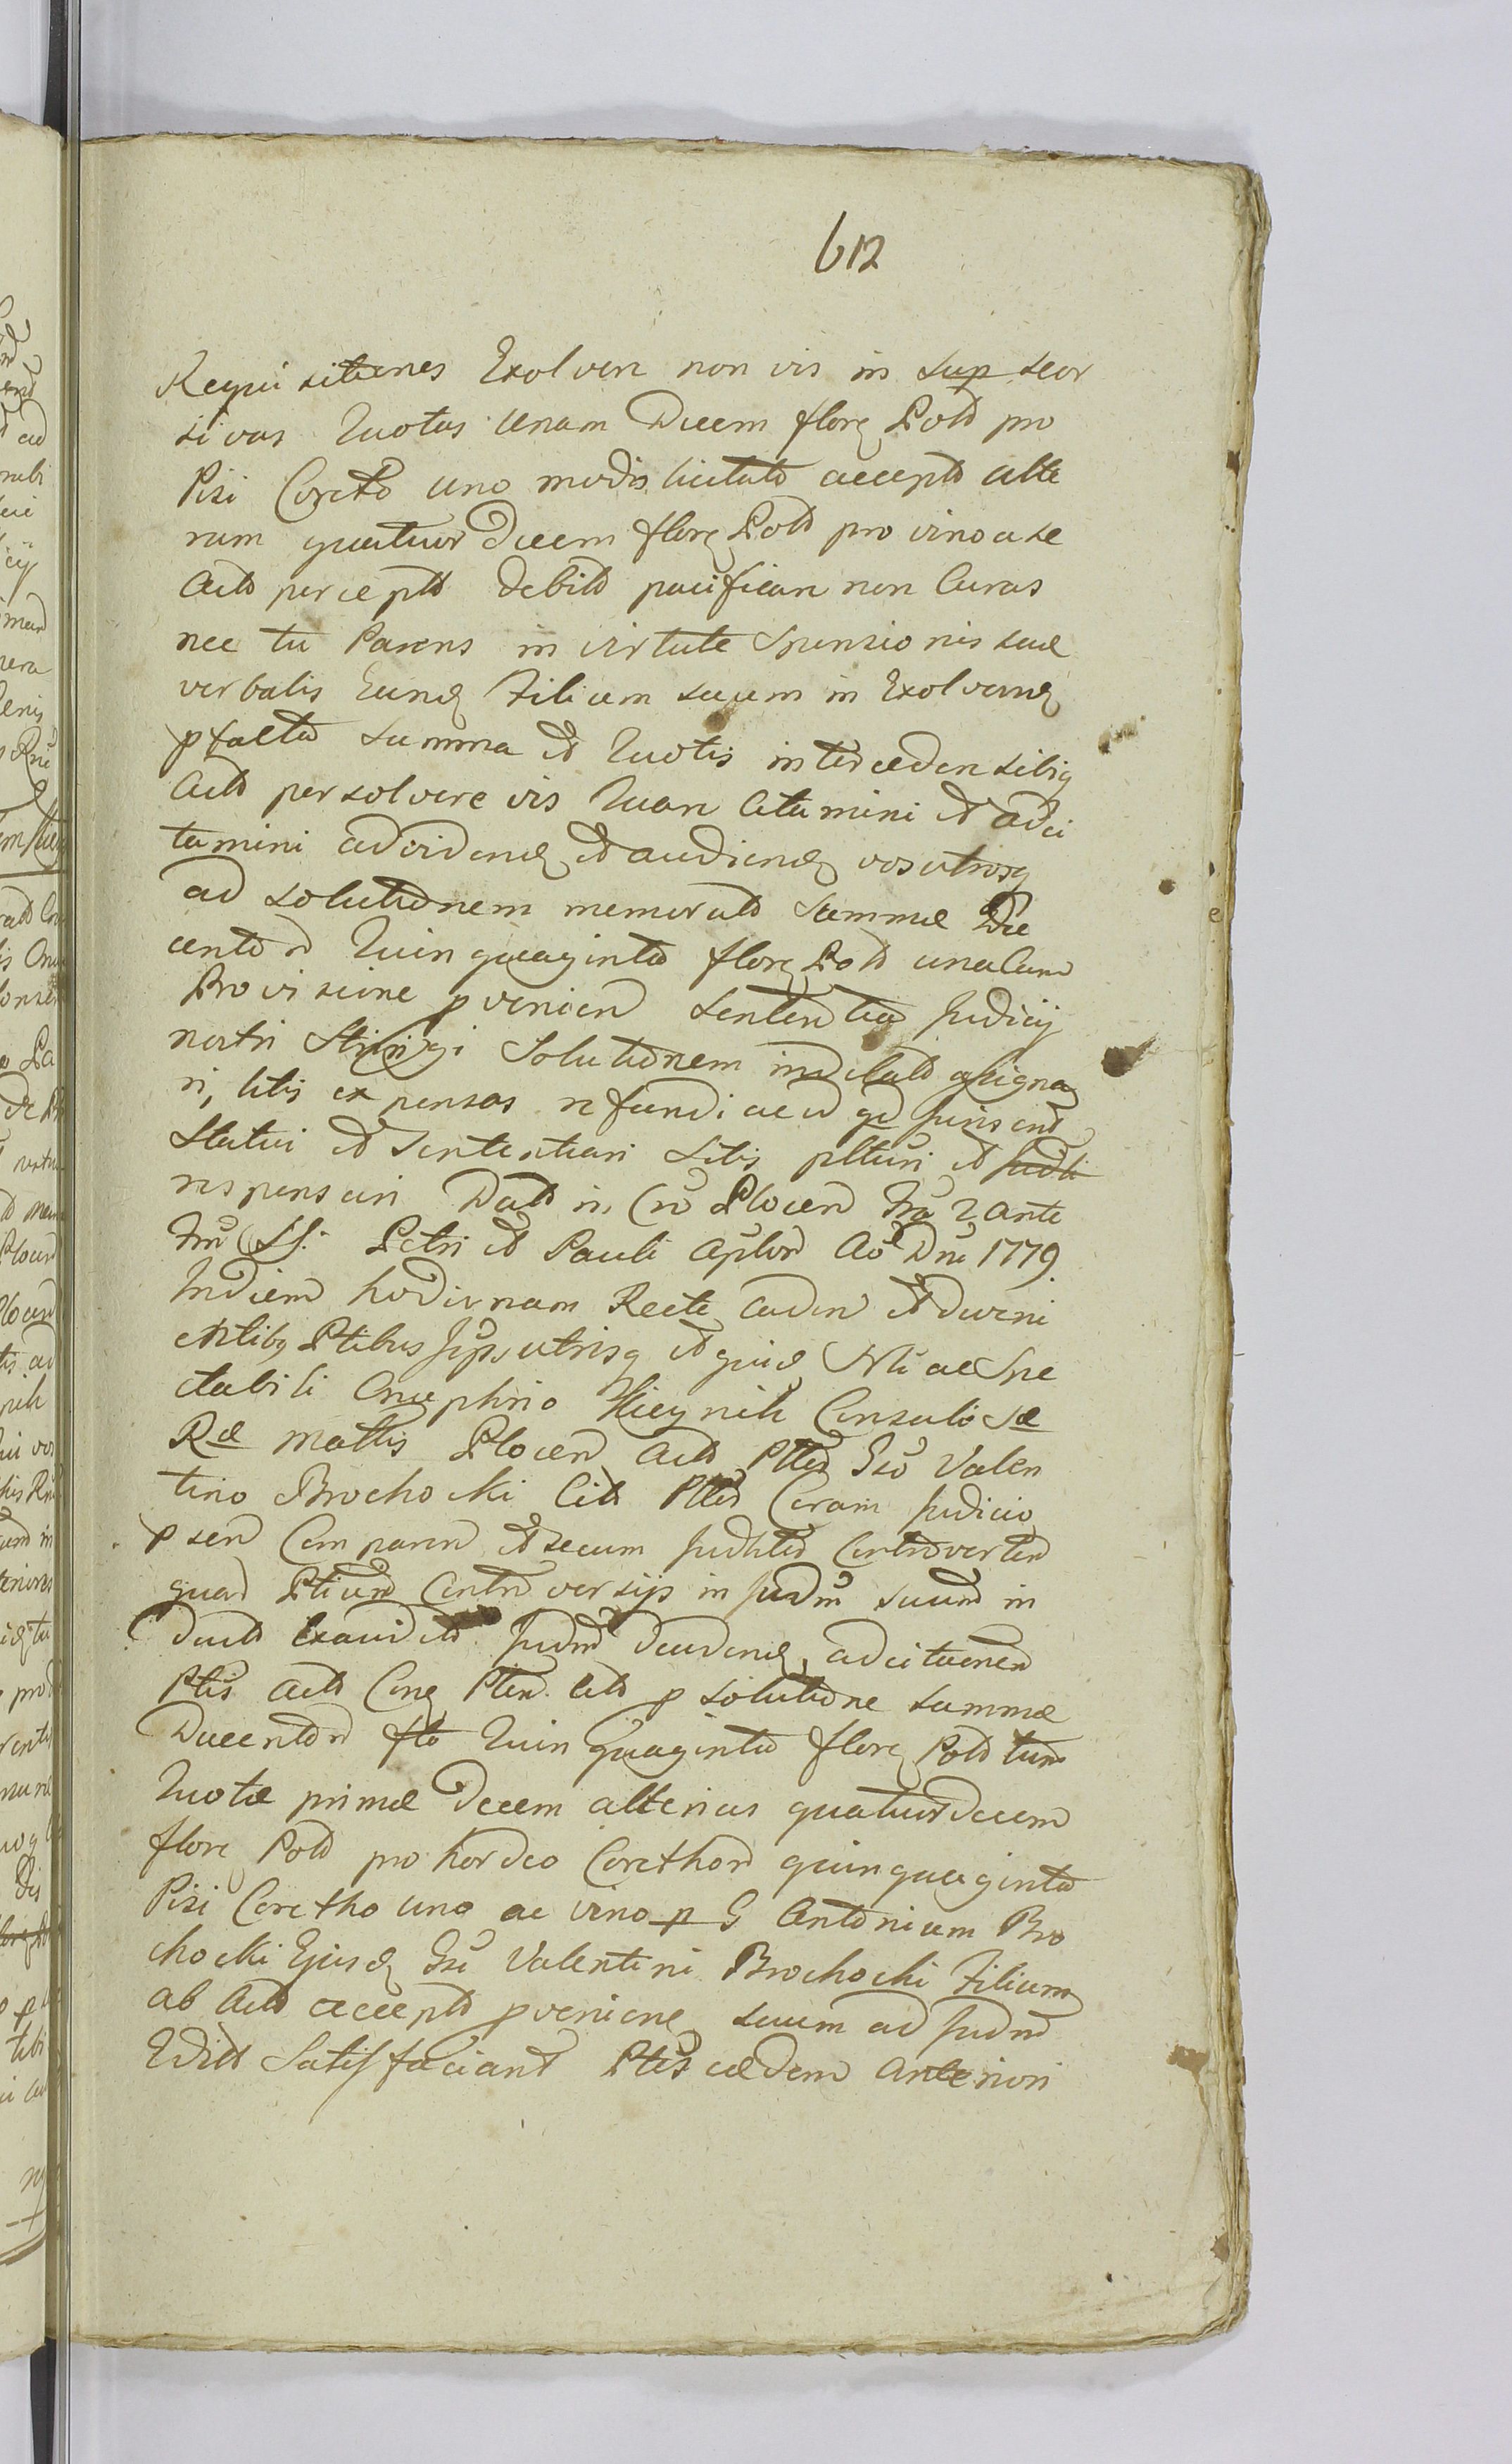 612
Requisitiones Exolvere non vis in sup seor
sivas Quotas unam Decem flore Pold pro
Pisi Coreto uno modis licitato accepto alte
ram quatuor Decem flore Pold pro vino a se
Actò percepto debito pacificare non Curas
nec tu Parens in virtute Sponsionis suæ
verbalis Eund Filium suum in Exolvend
pfacta Summa et Quotis intercedens sibiq
Actò persolvere vis Quare Citamini et adci
tamini advidend et audiend vos utrosq
ad solutionem memorato Summæ Du
centor Quinquaginta flore Pold una Cum
Provisione pvenien Sententia Judicij
nostri Stringi Solutionem indilato assigna
ri, litis expensas refundi ac id qd juris erit
Statui et Sententiari Litis plturi et Judli
responsuri Datt in Cro Plocen Fria 2 ante
Frm SS: Petri et Pauli Aplor Aò Dni 1779.
Indiem hodiernam Recte caden et dveni
entibq Ptibus Ipsis utrisq et quid Nli ac Spe
ctabili Onuphrio Kieynik Consuli Sæ
Ræ Mattis Plocen Actò Ptte Gso Valen
tino Brochocki Citò Ptte Coram Judicio
psen Comparen et secum Judltd Controverten
quar Ptium Controversijs in Judm suum in
ducto Exaudito Judm decidend adcitaonem
Ptis Actò Cong Pten. Citò p solutione summæ
Ducentor flo Quinquaginta flore Pold tum
Quotæ primæ decem alterius quatuordecem
flore Pold pro hordeo Corethor quinquaginta
Pisi Coretho uno ac vino p G Antonium Bro
chocki Ejusd Gsi Valentini Brochocki Filium
ab Actò accepto pveniend suum ad Judm
Edidit Satisfaciant Ptes eædem anteriori